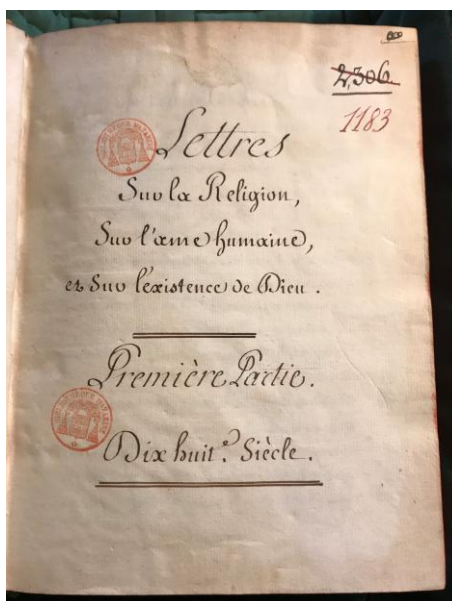 2,306.
1183
Lettres
Sur la Religion,
Sur l'ame humaine,
et Sur l'existence de Dieu.
Première Partie.
Dix huit.e Siècle.